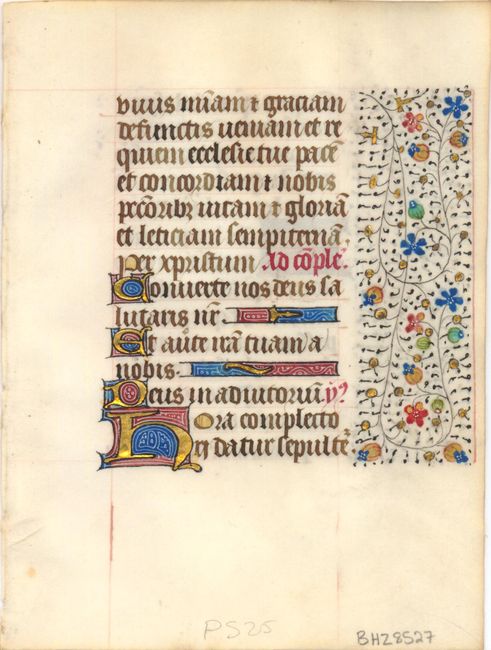 vivis mi͂am ⁊ graciam
defunctis veniam et re
quiem ecclesie tue pacē
et concordiam ⁊ nobis
pc̄cōribꝫ vitam ⁊ gloriā
et leticiam sempiternā.
Per xpristum Ad cōple᷒.
Converte nos deus sa
lutaris nr̄.
Et av̄te irā tuam a
nobis.
Deus in adiutoriū.
Hora complecto
rij datur sepultē
PS25
BHZ8527